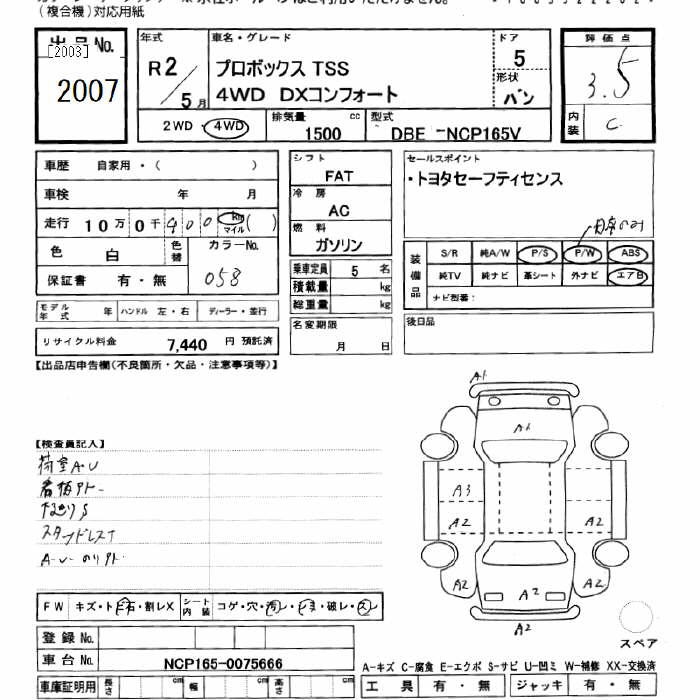 (複合機)対応用紙
出品No.
[2003]
2007
年式
R2/5月
車名・グレード
プロボックス TSS
4WD DXコンフォート
ドア
5
形状
バン
評価点
3.5
内装
C
2WD・4WD
排気量 1500 cc
型式 DBE －NCP165V
車歴 自家用・( )
車検 年 月
走行 10万0千900 km マイル ( )
色 白 色替 カラーNo. 058
保証書 有・無
モデル年式 年 ハンドル 左・右 ディーラー・並行
リサイクル料金 7,440 円 預託済
シフト
FAT
冷房
AC
燃料
ガソリン
乗車定員 5 名
積載量 kg
総重量 kg
名変期限
月 日
セールスポイント
・トヨタセーフティセンス
装備品
S/R 純A/W P/S P/W ABS
純TV 純ナビ 革シート 外ナビ エアB
ナビ型番:
後日品
【出品店申告欄(不良箇所・欠品・注意事項等)】
【検査員記入】
荷室A・U
看板アト
スタッドレス
A1
A1
A3
A2
A2
A2
A2
A2
A2
スペア
FW キズ・ト
石・割レX
シート内装
コゲ・穴・汚レ・シミ・破レ・スレ
登録No.
車台No. NCP165-0075666
車庫証明用 長さ cm 幅 cm 高さ cm
A-キズ C-腐食 E-エクボ S-サビ U-凹ミ W-補修 XX-交換済
工具 有・無 ジャッキ 有・無